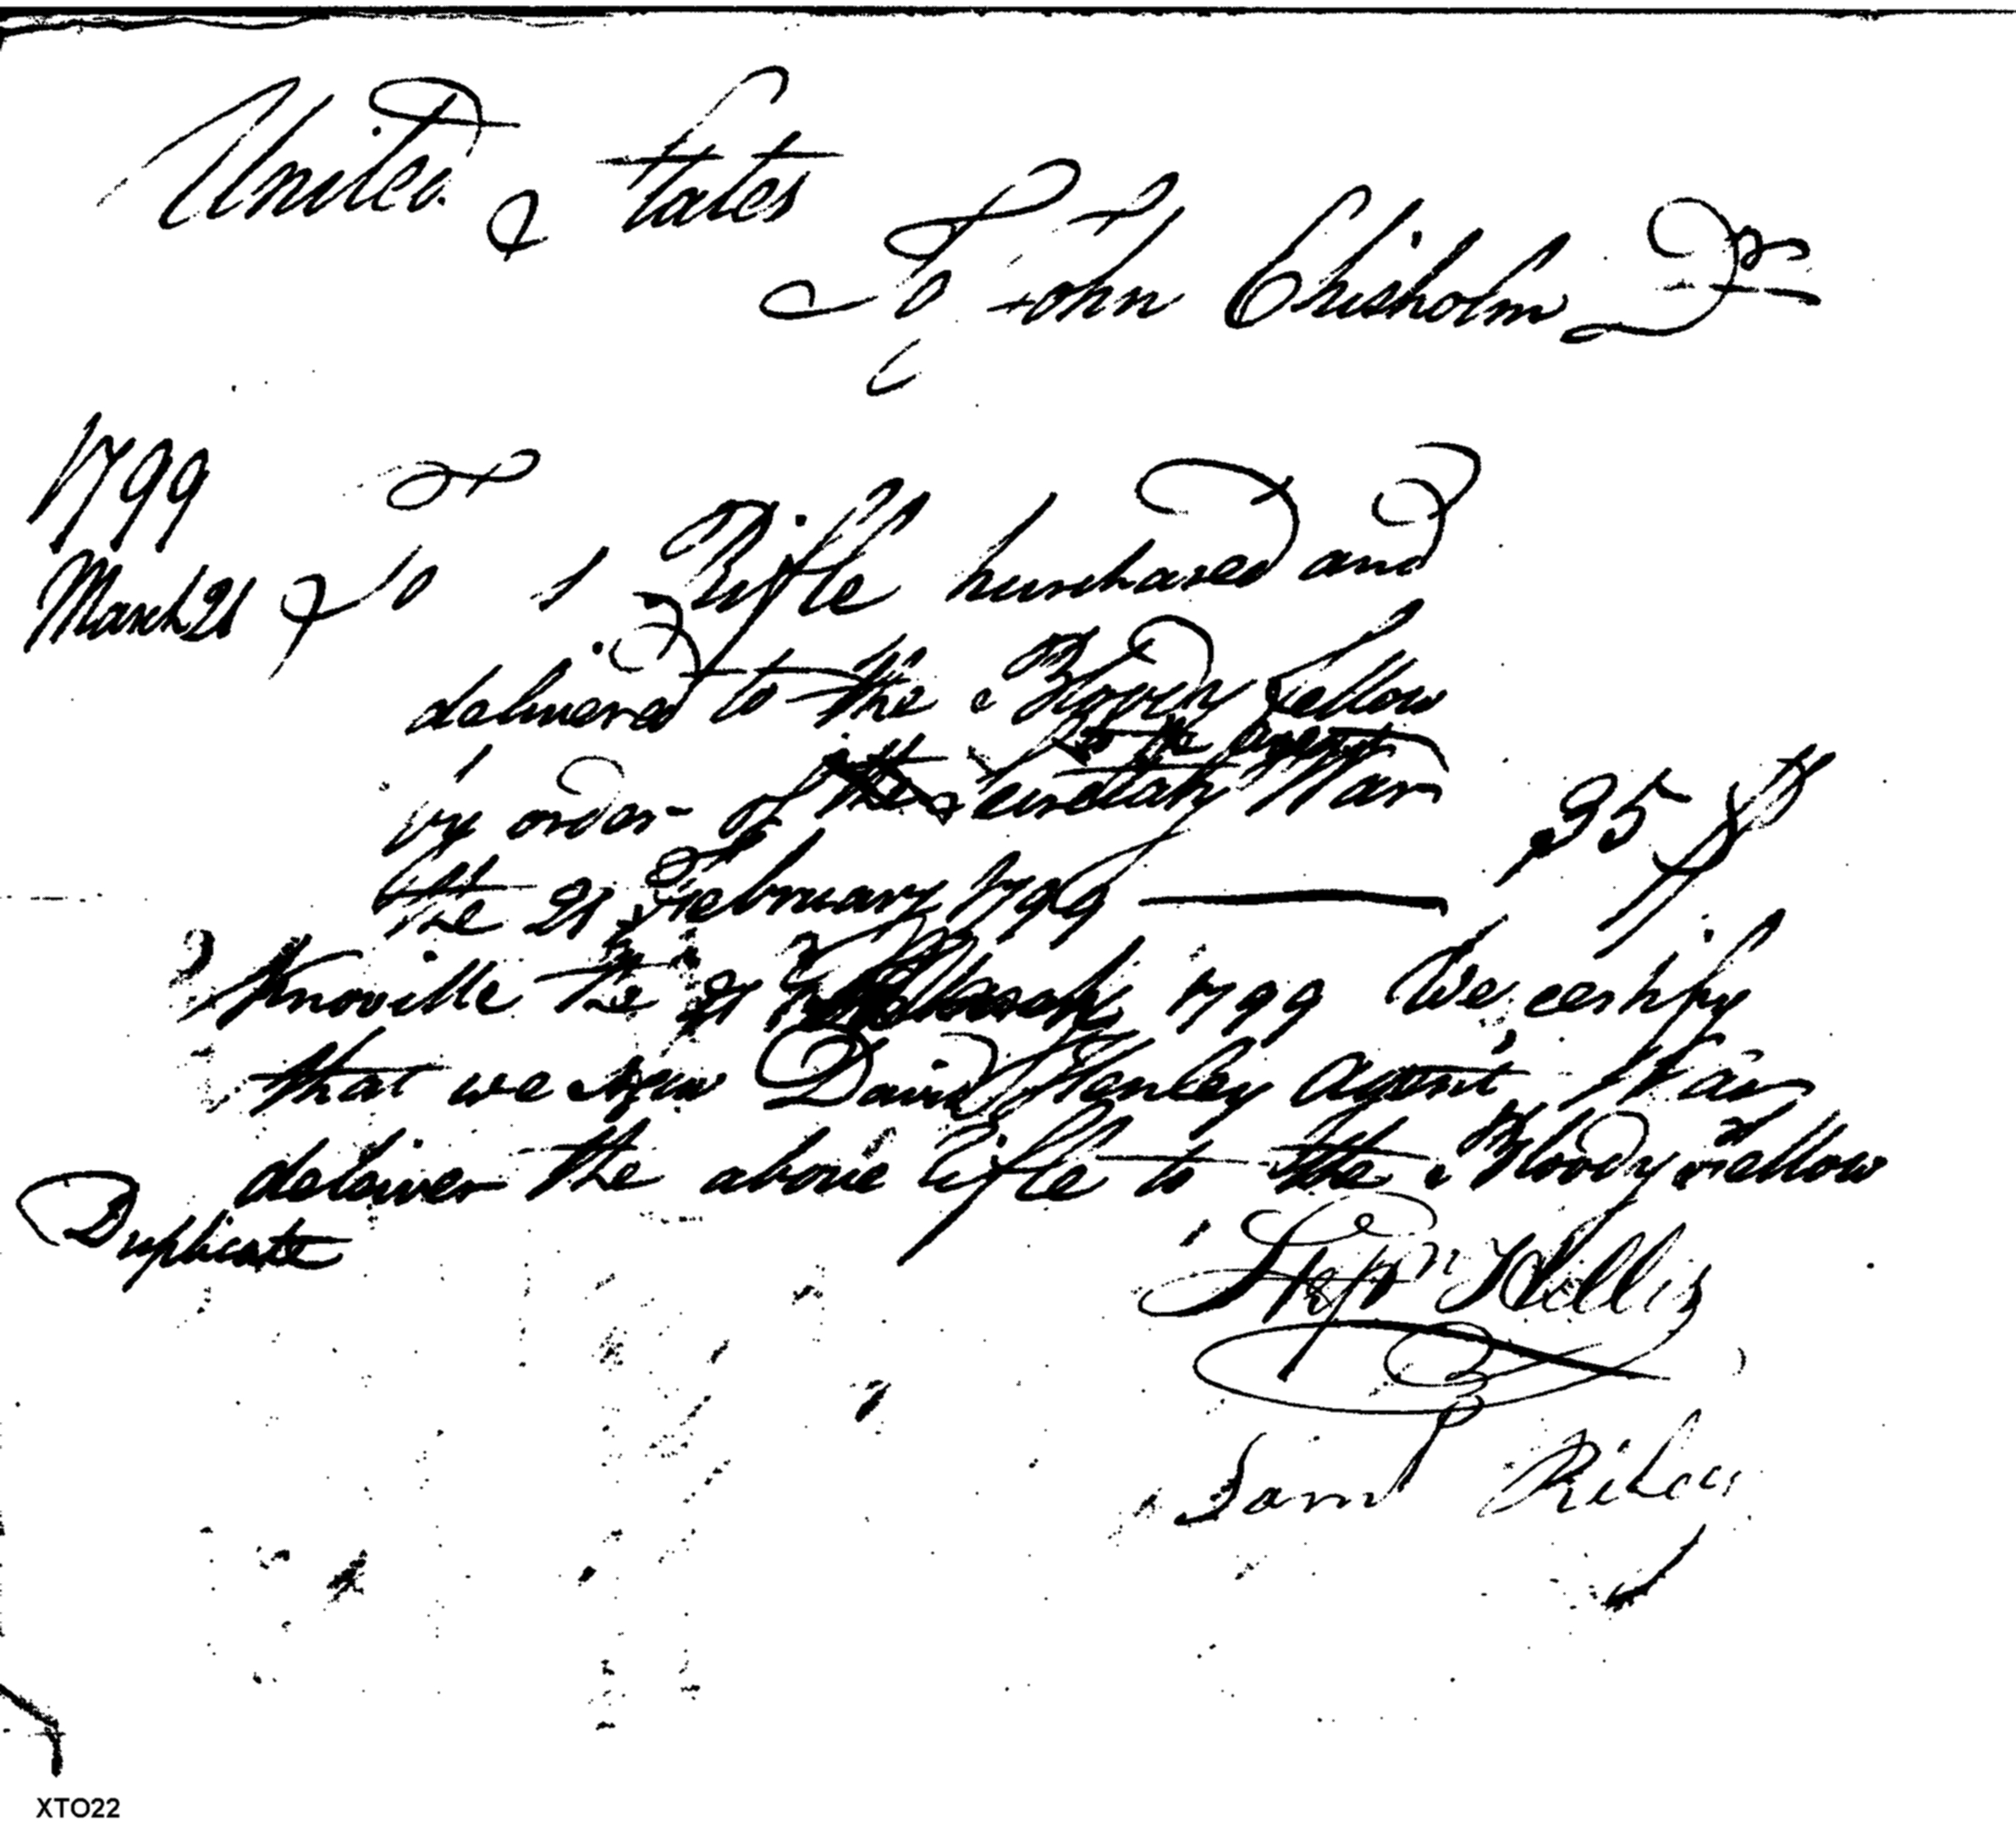 United States
To John Chisholm Dr
1799
March 21 To 1 Rifle purchased and
delivered to the Bloody Fellow
to the agent
by order of the Secretary War
the 21 February 1799 — 25 Ds
Knoxville the 21 March 1799 We certify
that we saw David Henley agent War
deliver the above rifle to the Bloody Fellow
Duplicate
Hillis
Saml Riley
XTO22